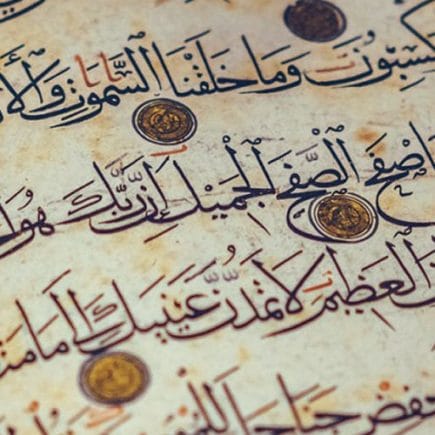 كْسِبُونَ وَمَا خَلَقْنَا السَّمٰوٰتِ وَالْأَ
اصْفَحِ الصَّفْحَ الْجَمِيلَ إِنَّ رَبَّكَ هُوَ
الْعَظِيمَ لَا تَمُدَّنَّ عَيْنَيْكَ إِلَى مَا مَت
خفِضْ جَنَاحَكَ للمؤ